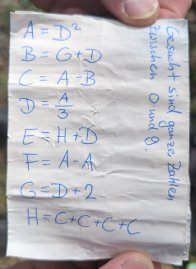 A = D²
B = G+D
C = A-B
D = A/3
E = H+D
F = A-A
G = D+2
H = C+C+C+C
Gesucht sind ganze Zahlen
zwischen 0 und 9.